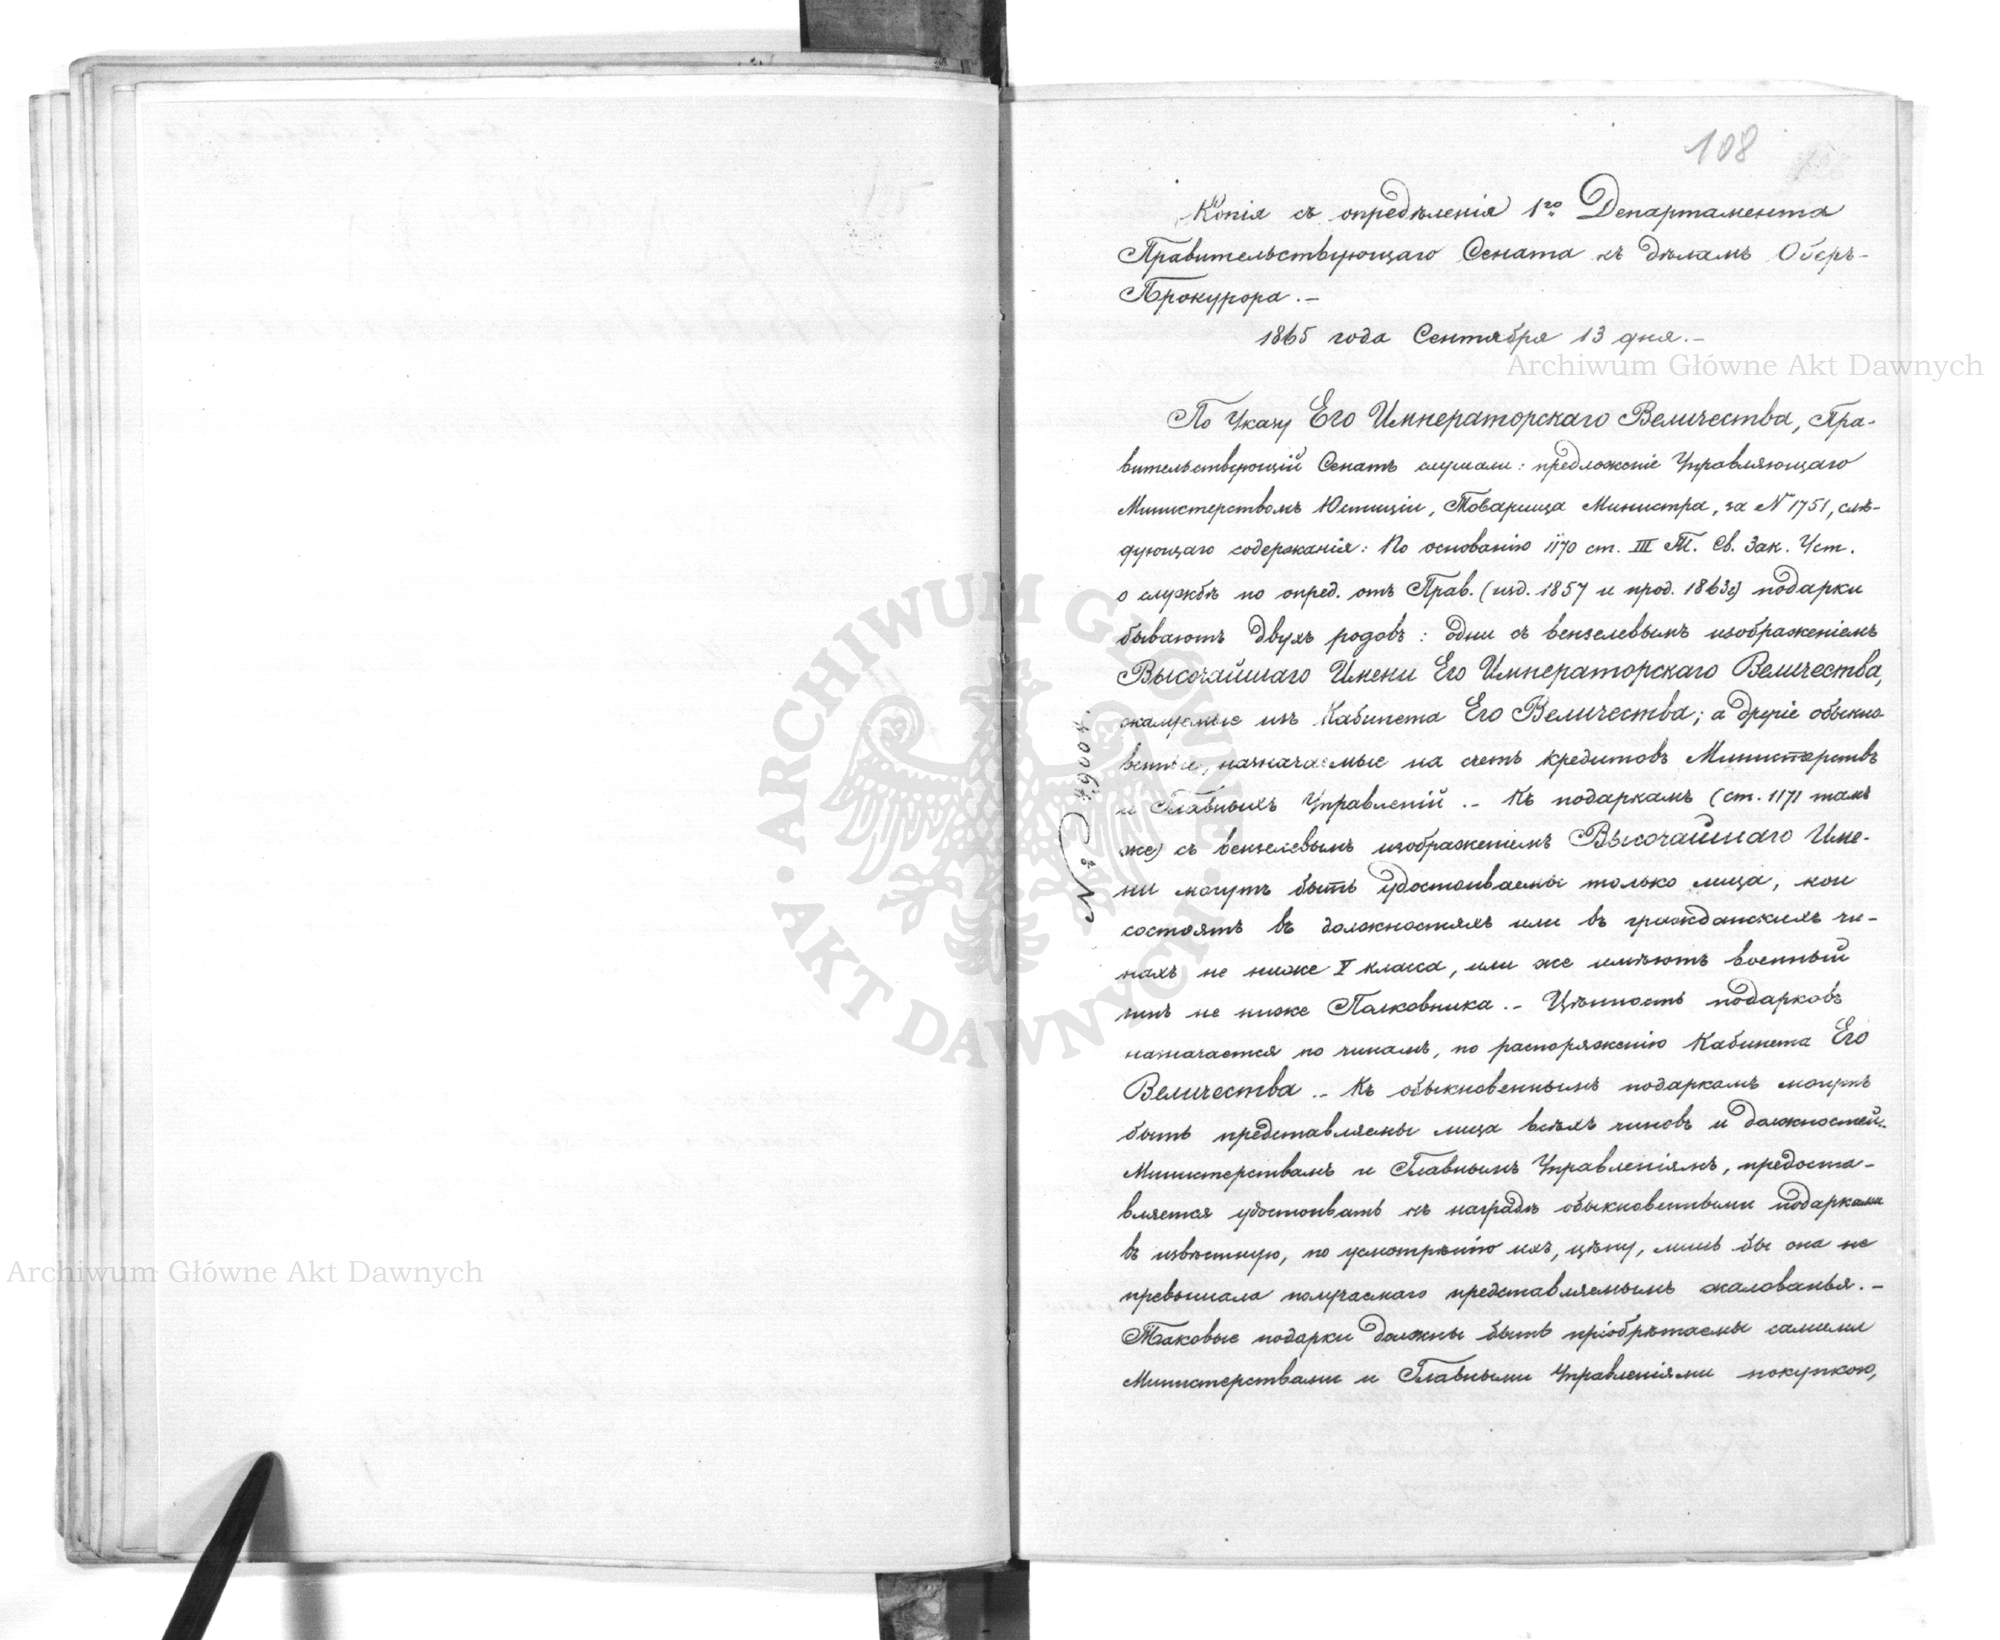 108
Копія съ опредѣленія 1го Департамента
Правительствующаго Сената къ дѣламъ Оберъ-
Прокурора.–
1865 года Сентября 13 дня.–
По Указу Его Императорскаго Величества, Пра-
вительствующій Сенатъ слушали: предложеніе Управляющаго
Министерствомъ Юстиціи, Товарища Министра, за N 1751, слѣ-
дующаго содержанія: По основанію 1170 ст. III Т. Св. Зак. Уст.
о службѣ по опред. отъ Прав. (изд. 1857 и прод. 1863г) подарки
бываютъ двухъ родовъ: одни съ вензелевымъ изображеніемъ
Высочайшаго Имени Его Императорскаго Величества,
жалуемые изъ Кабинета Его Величества; а другіе обыкно-
венные, назначаемые на счетъ кредитовъ Министерствъ
и Главныхъ Управленій.– Къ подаркамъ (ст. 1171 тамъ
же) съ вензелевымъ изображеніемъ Высочайшаго Име-
ни могутъ быть удостоиваемы только лица, кои
состоятъ въ должностяхъ или въ гражданскихъ чи-
нахъ не ниже V класса, или же имѣютъ военный
чинъ не ниже Полковника.– Цѣнность подарковъ
назначается по чинамъ, по распоряженію Кабинета Его
Величества.– Къ обыкновеннымъ подаркамъ могутъ
быть представляемы лица всѣхъ чиновъ и должностей.
Министерствамъ и Главнымъ Управленіямъ, предоста-
вляется удостоивать къ наградѣ обыкновенными подарками
въ извѣстную, по усмотрѣнію ихъ, цѣну, лишь бы она не
превышала получаемаго представляемымъ жалованья.–
Таковые подарки должны быть пріобрѣтаемы самими
Министерствами и Главными Управленіями покупкою,
Archiwum Główne Akt Dawnych
Archiwum Główne Akt Dawnych
ARCHIWUM GŁÓWNE · AKT DAWNYCH ·